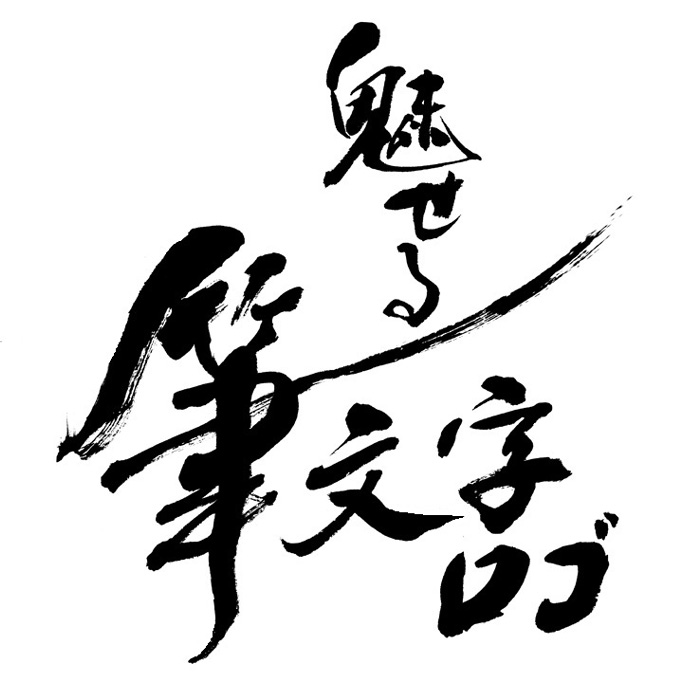 魅せる
筆文字
ロゴ